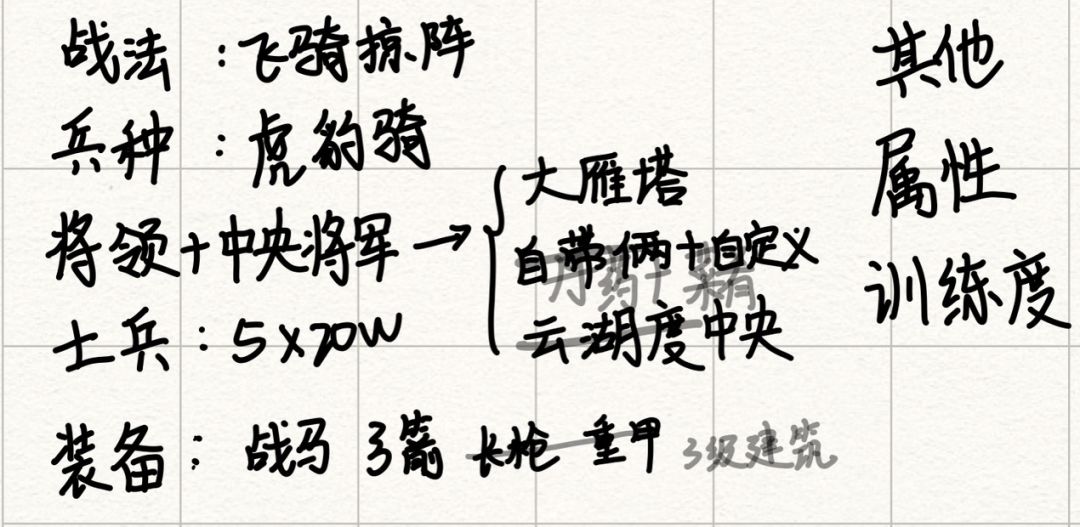 战法：飞骑掠阵
兵种：虎豹骑
将领+中央将军→
大雁塔
自带俩+自定义
云湖度中央
士兵：5×20W
装备：战马 弓箭 长枪 重甲 3级建筑
其他
属性
训练度